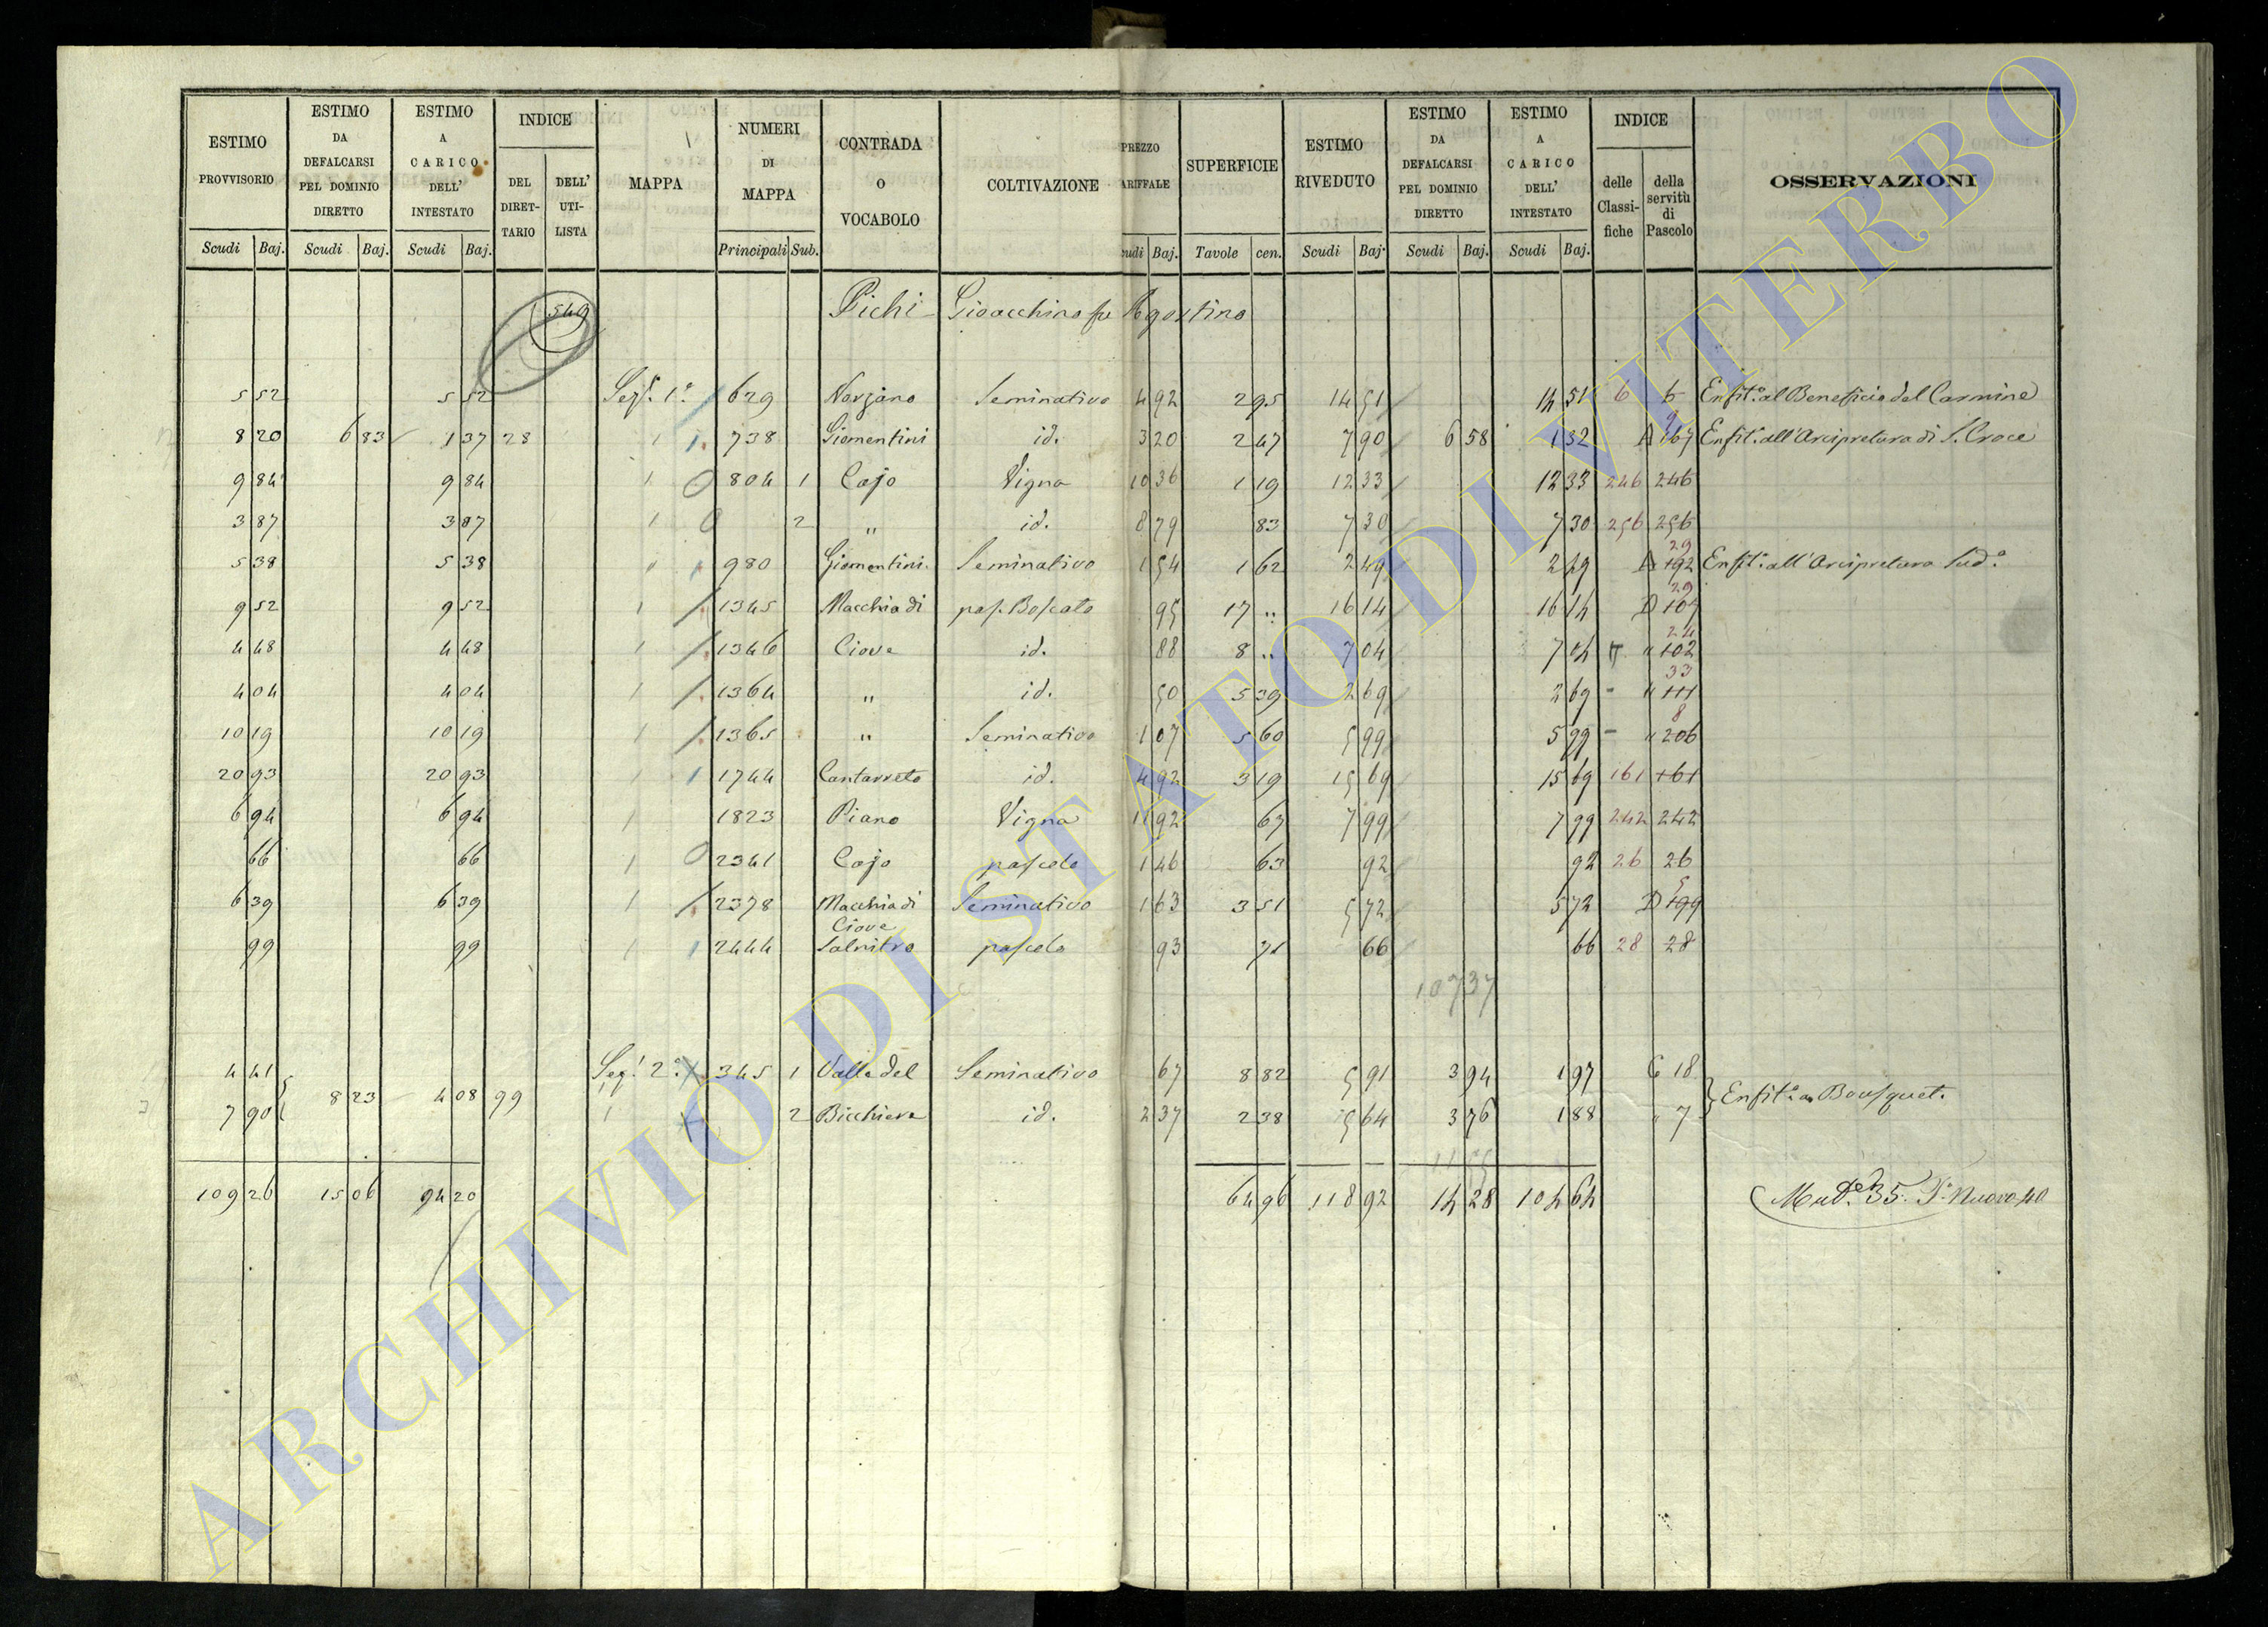 ESTIMO PROVVISORIO | ESTIMO DA DEFALCARSI PEL DOMINIO DIRETTO | ESTIMO A CARICO DELL' INTESTATO | INDICE DEL DIRETTARIO | DELL' UTILISTA | MAPPA | NUMERI DI MAPPA | CONTRADA O VOCABOLO | COLTIVAZIONE | PREZZO ARIFFALE | SUPERFICIE | ESTIMO RIVEDUTO | ESTIMO DA DEFALCARSI PEL DOMINIO DIRETTO | ESTIMO A CARICO DELL' INTESTATO | INDICE delle Classifiche | della servitù di Pascolo | OSSERVAZIONI
Scudi Baj. | Scudi Baj. | Scudi Baj. | Principali Sub. | udi Baj. | Tavole cen. | Scudi Baj. | Scudi Baj. | Scudi Baj.
549 Pichi Gioacchino fu Agostino
5 52 | 5 52 | Sez. 1ª | 629 | Norzano | Seminativo | 4 92 | 2 95 | 14 51 | 14 51 | 6 | 6 | Enfit.a al Beneficio del Carmine
8 20 | 6 83 | 1 37 | 28 | 1 | 738 | Giomentini | id. | 3 20 | 2 47 | 7 90 | 6 58 | 1 32 | A | 167 | Enfit.a all'Arcipretura di S. Croce
9 84 | 9 84 | 1 | 804 | 1 | Cajo | Vigna | 10 36 | 1 19 | 12 33 | 12 33 | 246 | 246
3 87 | 3 87 | 1 | 2 | " | id. | 8 79 | 83 | 7 30 | 7 30 | 256 | 256
5 38 | 5 38 | 1 | 980 | Giomentini | Seminativo | 1 54 | 1 62 | 2 49 | 2 49 | A | 29 192 | Enfit.a all'Arcipretura Sud.a
9 52 | 9 52 | 1 | 1345 | Macchia di | pas. Boscato | 95 | 17 " | 16 14 | 16 14 | D | 29 107
4 48 | 4 48 | 1 | 1346 | Ciove | id. | 88 | 8 " | 7 04 | 7 04 | " | 24 102
4 04 | 4 04 | 1 | 1364 | " | id. | 50 | 5 39 | 2 69 | 2 69 | " | 33 111
10 19 | 10 19 | 1 | 1365 | " | Seminativo | 1 07 | 5 60 | 5 99 | 5 99 | " | 8 206
20 93 | 20 93 | 1 | 1744 | Cantarreto | id. | 4 92 | 3 19 | 15 69 | 15 69 | 161 | 161
6 94 | 6 94 | 1 | 1823 | Piano | Vigna | 11 92 | 67 | 7 99 | 7 99 | 242 | 242
66 | 66 | 1 | 2341 | Cajo | pascolo | 1 46 | 63 | 92 | 92 | 26 | 26
6 39 | 6 39 | 1 | 2378 | Macchia di Ciove | Seminativo | 1 63 | 3 51 | 5 72 | 5 72 | D | 5 199
99 | 99 | 1 | 2444 | Salnitro | pascolo | 93 | 71 | 66 | 66 | 28 | 28
107 37
4 41 | Sez. 2ª | 345 | 1 | Valle del | Seminativo | 67 | 8 82 | 5 91 | 3 94 | 1 97 | C | 18
8 23 | 4 08 | 99 | Enfit.a a Bousquet.
7 90 | 1 | 2 | Bicchiere | id. | 2 37 | 2 38 | 5 64 | 3 76 | 1 88 | " | 7
109 26 | 15 06 | 94 20 | 64 96 | 118 92 | 14 28 | 104 64 | Mut.e 35. P. Nuova 40
ARCHIVIO DI STATO DI VITERBO